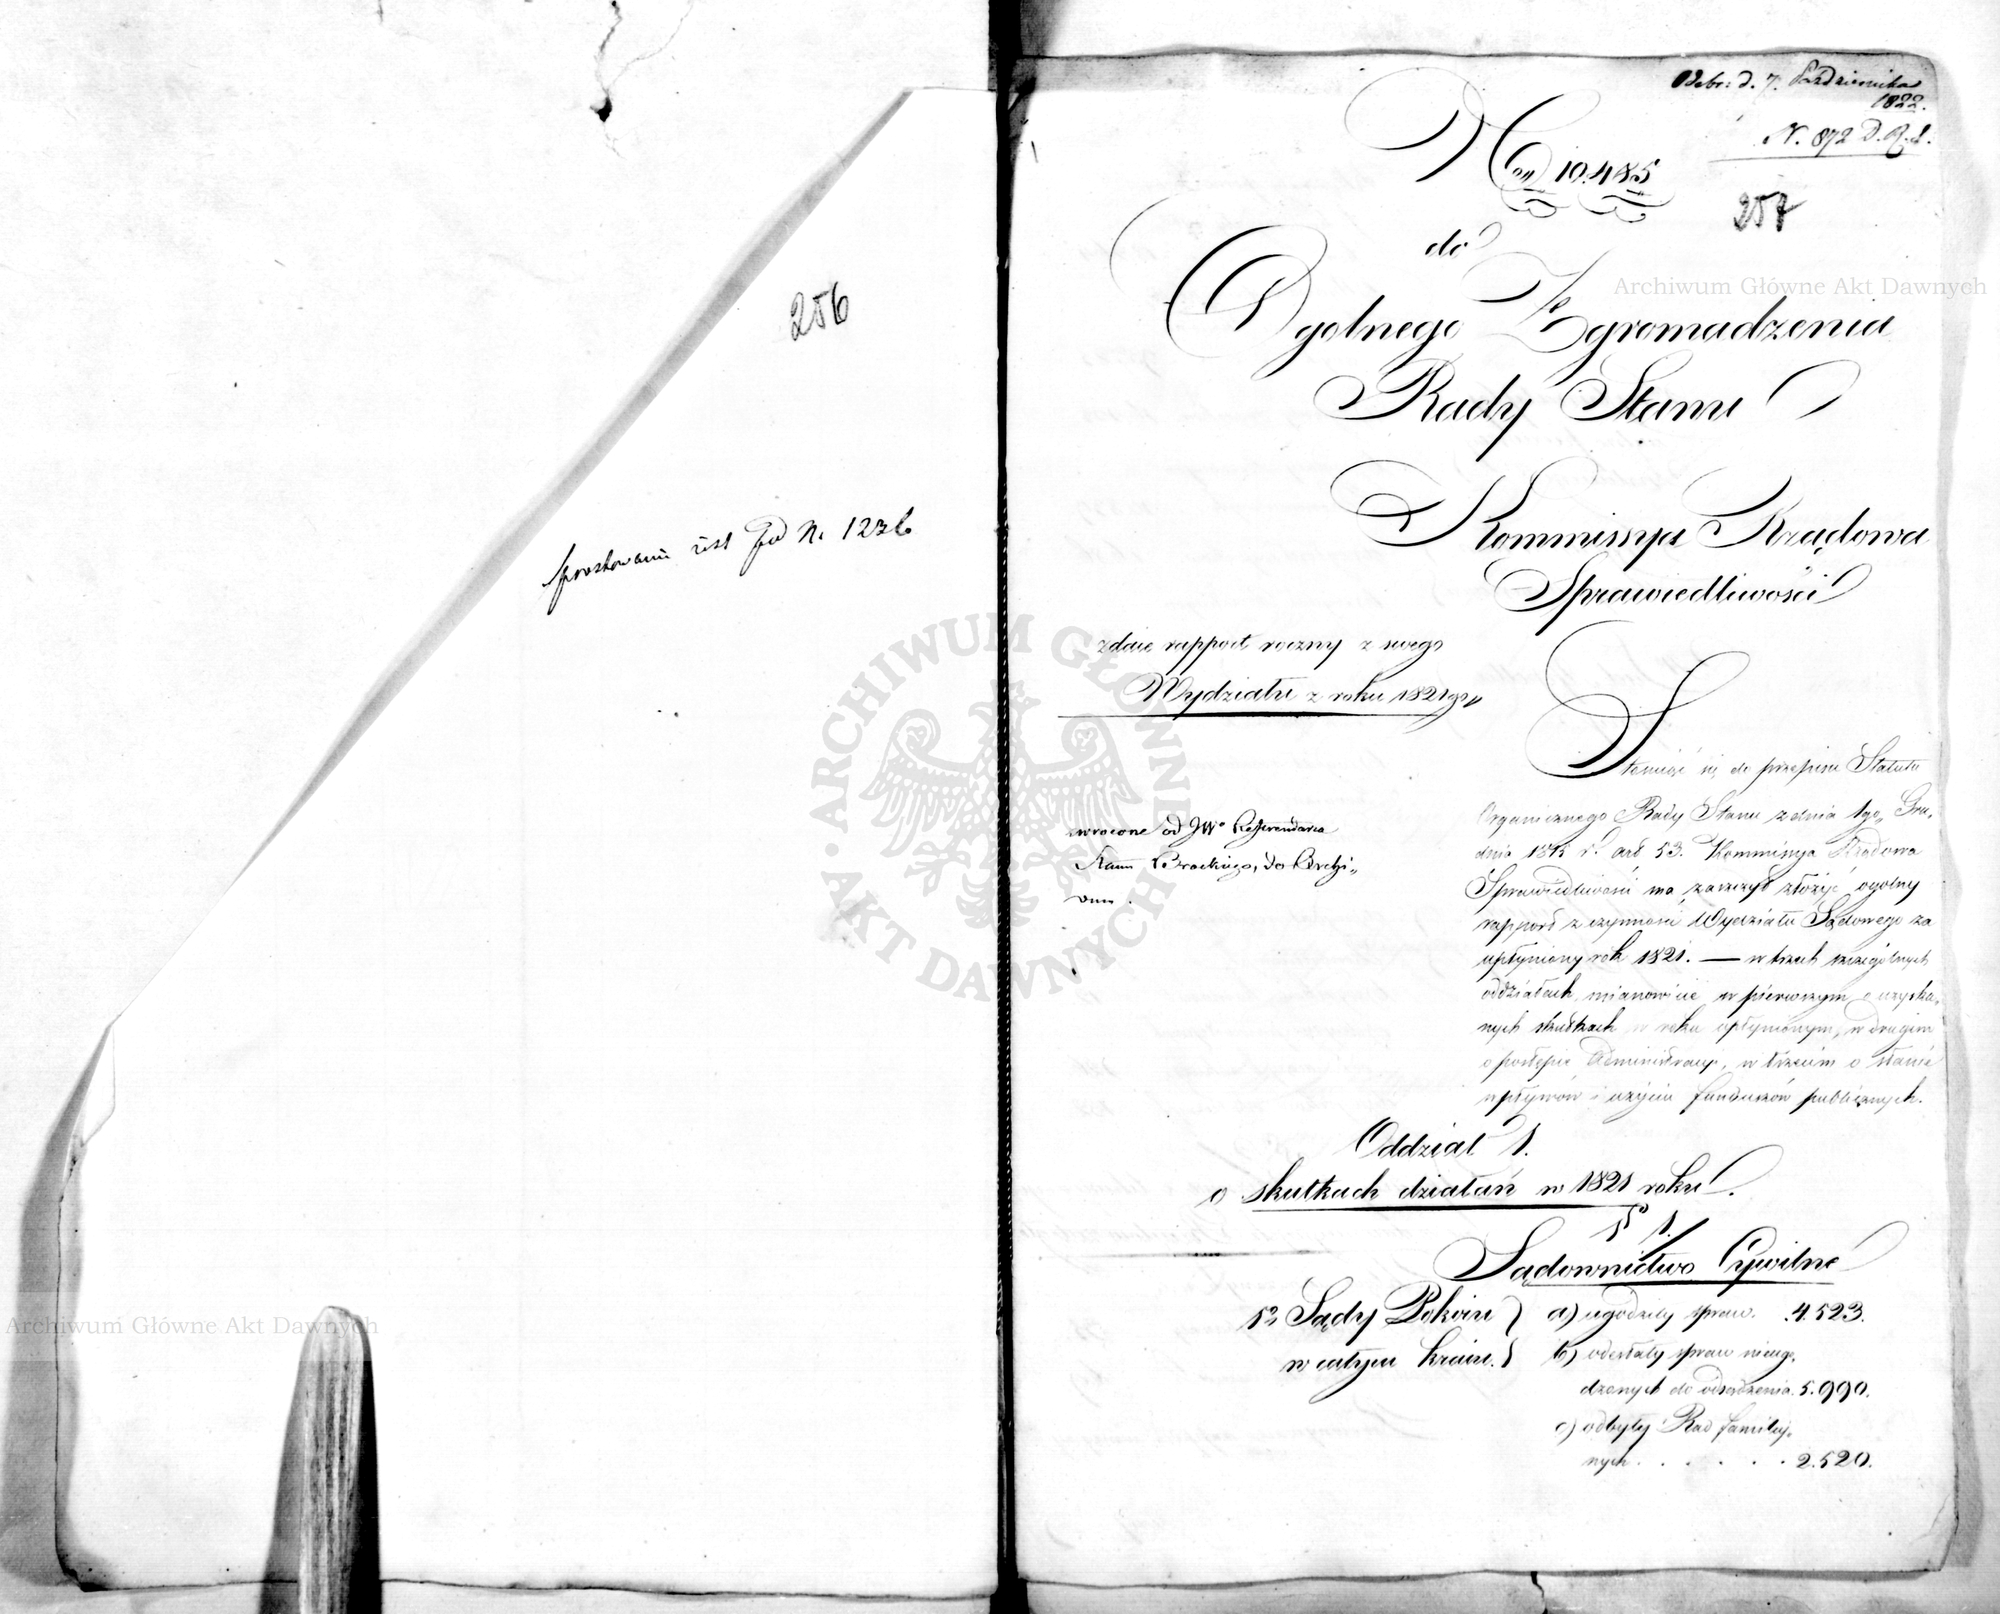 256
Sprostowanie jest pod N. 1236
Odebr: d. 7. Października
1822.
N. 872 D. R. S.
257
Nro 10.485
do
Ogolnego Zgromadzenia
Rady Stanu
Kommissya Rządowa
Sprawiedliwości
zdaie rapport roczny z swego
Wydziału z roku 1821go
Stosuiąc się do przepisu Statutu
Organicznego Rady Stanu z dnia 1go Gru,
dnia 1815 r. art 53. Kommissya Rządowa
Sprawiedliwości ma zaszczyt złożyć ogolny
rapport z czynności Wydziału Sądowego za
upłyniony rok 1821. — w trzech szczególnych
oddziałach, mianowicie w pierwszym o uzyska,
nych skutkach w roku upłynionym, w drugim
o postępie Administracyi, w trzecim o stanie
wpływów i użyciu funduszów publicznych.
wrocone od JWo Referendarza
Stanu do Archi,
vum.
Oddział 1.
o skutkach działań w 1821 roku.
§ 1.
Sądownictwo Cywilne
Sądy Pokoiu
w całym kraiu.
a) ugodziły spraw. 4.523.
b) odesłały spraw nieugo,
dzonych do odsądzenia. 5.990.
c) odbyły Rad familij,
nych . . . . . 2.520.
Archiwum Główne Akt Dawnych
ARCHIWUM GŁÓWNE
AKT DAWNYCH
Archiwum Główne Akt Dawnych